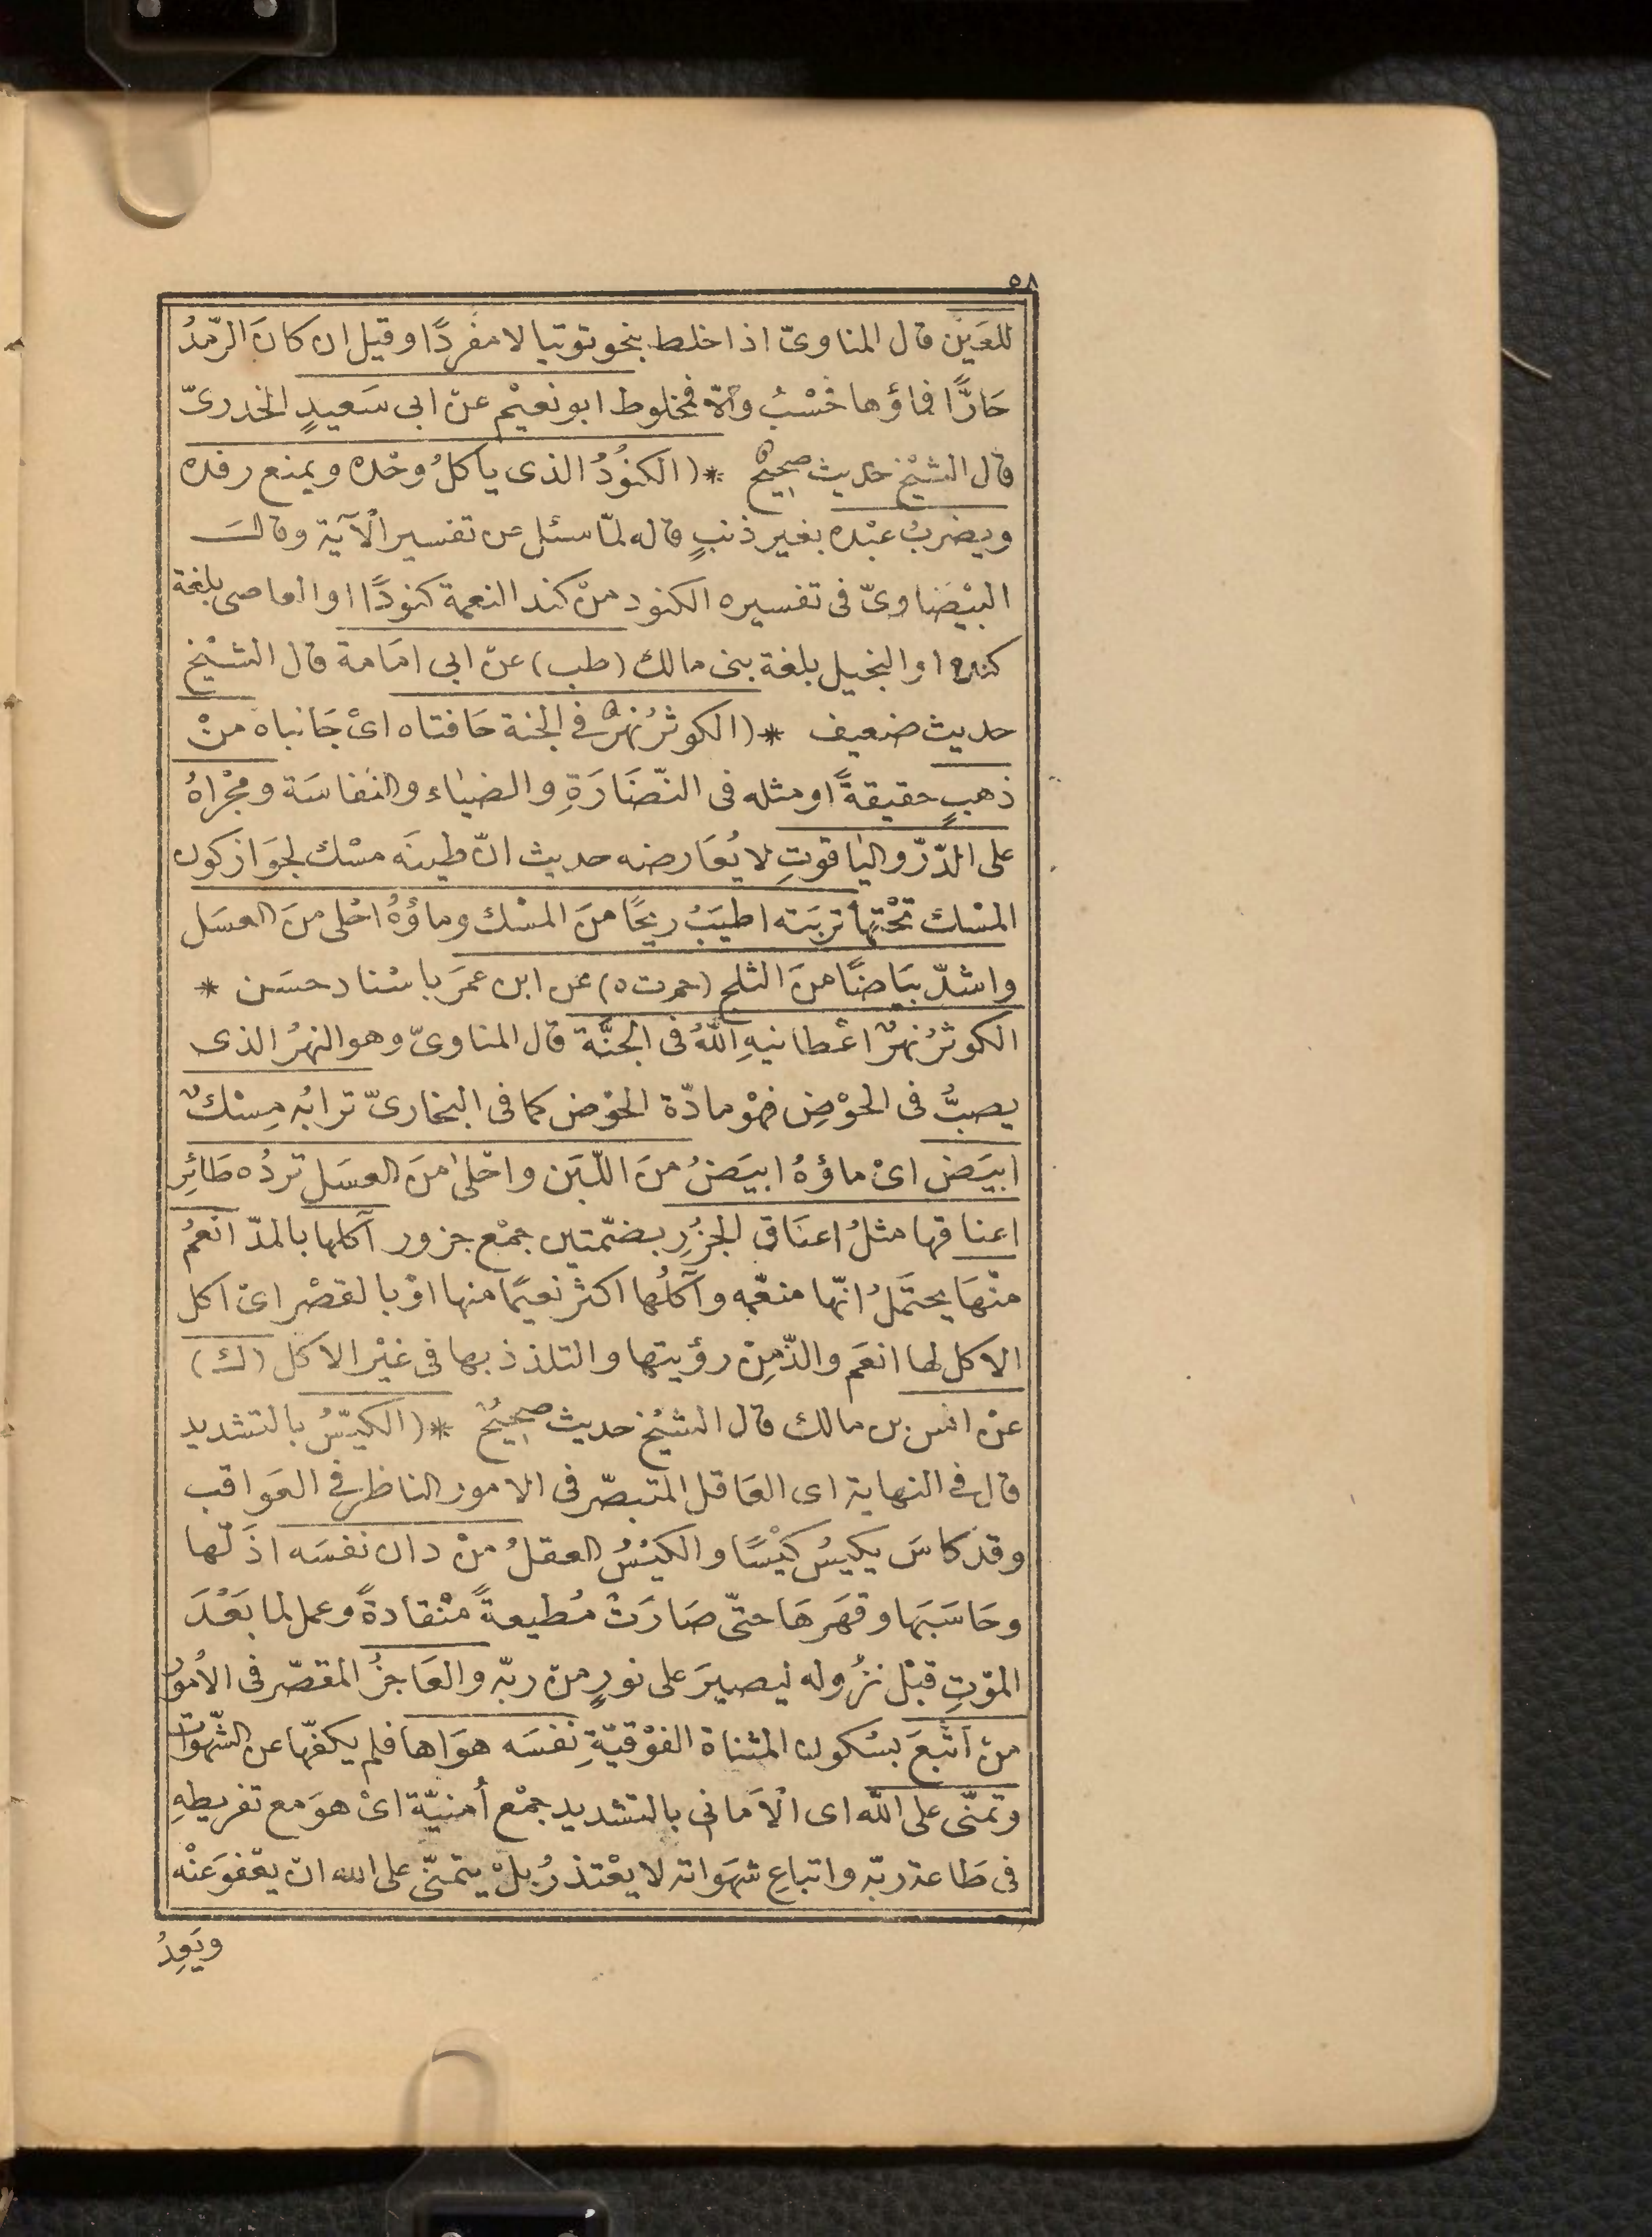 ٥٨
للعَين قال المناوىّ اذا خلط بنحو توتيا لا مفردًا وقيل ان كانَ الرّمدُ
حَارًّا فماؤها فحسْبُ والّا فمخلوط ابو نعيْم عن ابى سَعيدٍ الخدرىّ
قال الشيْخ حديث صحيحٌ * (الكنُودُ الذى يأكلُ وحْده ويمنع رفده
ويضربُ عبْده بغير ذنبٍ قاله لمّا سئل عن تفسير الْآية وقال
البيْضاوىّ فى تفسيره الكنود منْ كند النعمة كنودًا او العاصى بلغة
كندة او البخيل بلغة بنى مالك (طب) عن ابى امَامة قال الشيْخ
حديث ضعيف * (الكوثرُ نهرٌ فى الجنة حَافتاه اىْ جَانباه منْ
ذهبٍ حقيقةً او مثله فى النّضَارَةِ والضياء والنفاسَة ومجْراهُ
على الدّرّ والياقوتِ لا يُعَارضه حديث انّ طينَه مسْك لجوَاز كون
المسْك تحْتها تربَته اطيَبُ ريحًا منَ المسْك وماؤهُ احْلى منَ العسَل
واشدّ بيَاضًا منَ الثلج (حم ت ه) عن ابن عمَر باسْناد حسَن *
الكوثرُ نهرٌ اعْطانيهِ اللّٰهُ فى الجنَّة قال المناوىّ وهو النهرُ الذى
يصبُّ فى الحوْضِ فهْو مادّة الحوْض كما فى البخارىّ ترابُه مِسْكٌ
ابيَض اىْ ماؤهُ ابيَضُ منَ اللّبَن واحْلى منَ العسَل تردُه طَائِر
اعناقها مثلُ اعنَاق الجزُرِ بضمّتين جمْع جزور آكلها بالمدّ انْعمُ
منْهَا يحتَملُ انّها منعّمه وآكلُها اكثر نعيمًا منها اوْ بالقصْر اىْ اكل
الاكل لها انعَم والذّ مِنْ رؤيتها والتلذذ بها فى غيْر الاكل (ك)
عنْ انس بن مالك قال الشيْخ حديث صحيحٌ * (الكيّسُ بالتشديد
قال فى النهاية اى العَاقل المتبصّر فى الامور الناظر فى العَواقب
وقدْ كاسَ يكيسُ كيْسًا والكيْسُ العقلُ منْ دان نفسَه اذَلّها
وحَاسَبَها وقهَرهَا حتّى صَارَتْ مُطيعةً منْقادةً وعمل لما بَعْدَ
الموْتِ قبْل نزُوله ليصيرَ على نورٍ منْ ربّه والعَاجزُ المقصّر فى الأمُور
منْ أتْبعَ بسُكون المثناة الفوْقيّةِ نفسَه هوَاها فلم يكفّها عن الشّهوَات
وتمنّى على اللّٰه اى الْاَمانى بالتشديد جمْع أُمنيّة اىْ هوَ مع تفريطهِ
فى طَاعة ربّه واتباعِ شهَواته لا يعْتذرُ بلْ يتمنّى على الله انْ يعْفوَ عنْه
ويَعِدُ